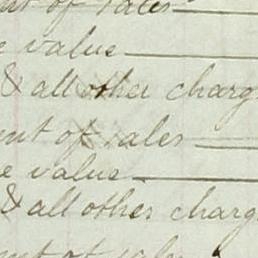 nt of sales
e value
& all other charg
ent of sales
e value
& all other charg
nt of sales